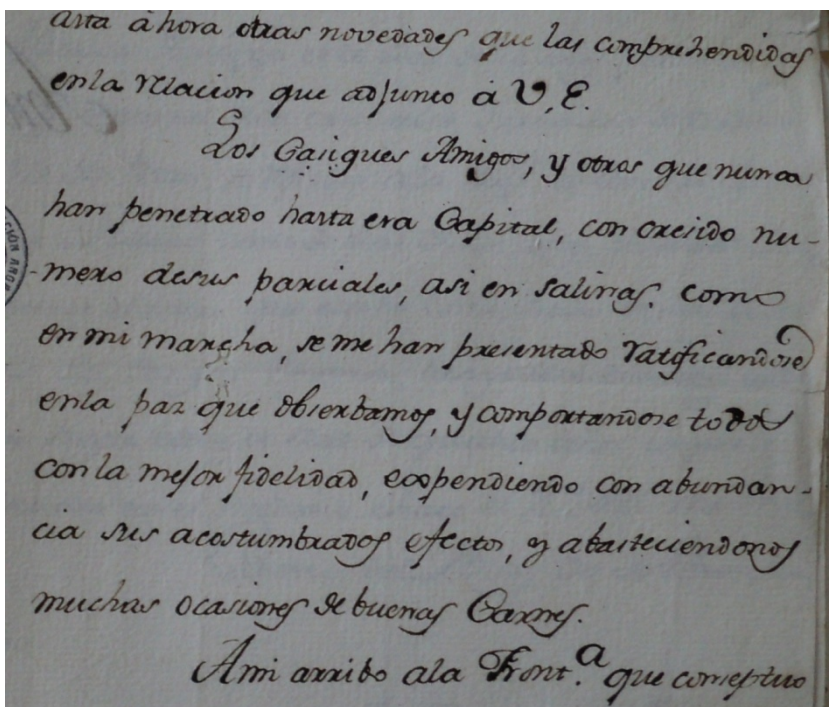 asta ahora otras novedades que las comprehendidas
en la relacion que adjunto à V,E.
Los Casiques Amigos, y otros que nunca
han penetrado hasta esa Capital, con cresido nu-
mero de sus parciales, asi en Salinas, como
en mi marcha, se me han presentado ratificandose
en la paz que obserbamos, y comportandose todos
con la mejor fidelidad, expendiendo con abundan-
cia sus acostumbrados efectos, y abasteciendonos
muchas ocasiones de buenas Carnes.
A mi arribo a la Front.a que conseptuo